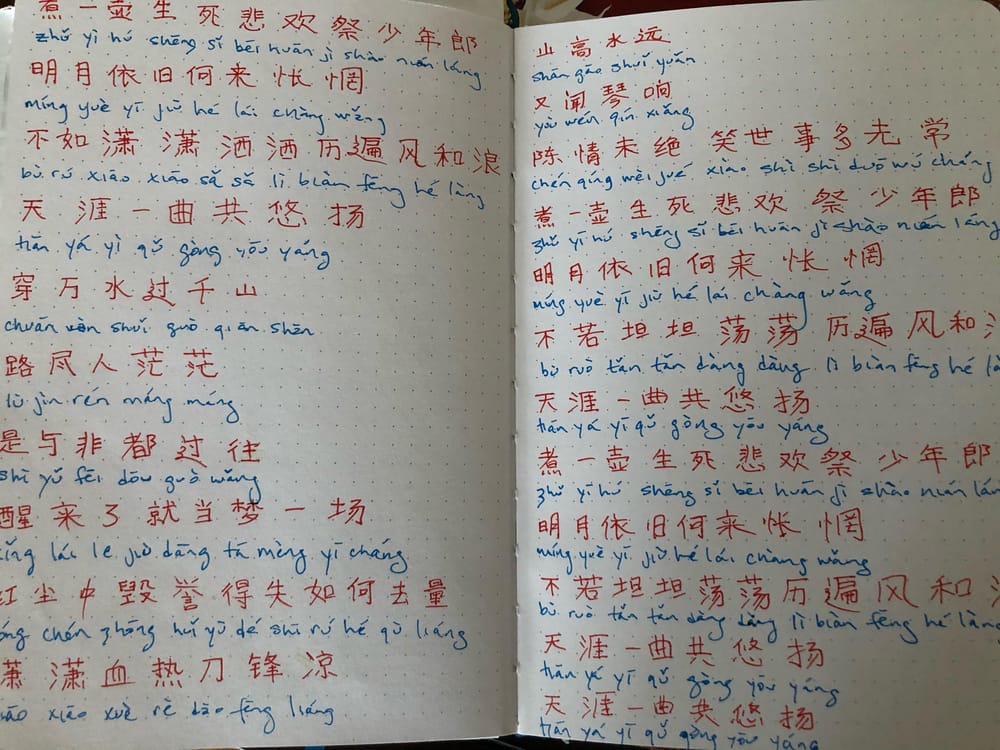 煮一壶生死悲欢祭少年郎
zhǔ yì hú shēng sǐ bēi huān jì shào nián láng
明月依旧何来怅惘
míng yuè yī jiù hé lái chàng wǎng
不如潇潇洒洒历遍风和浪
bù rú xiāo xiāo sǎ sǎ lì biàn fēng hé làng
天涯一曲共悠扬
tiān yá yì qǔ gòng yōu yáng
穿万水过千山
chuān wàn shuǐ guò qiān shān
路尽人茫茫
lù jìn rén máng máng
是与非都过往
shì yǔ fēi dōu guò wǎng
醒来了就当梦一场
ǐng lái le jiù dāng tā mèng yī cháng
红尘中毁誉得失如何去量
óng chén zhōng huǐ yù dé shī rú hé qù liáng
潇潇血热刀锋凉
iāo xiāo xuè rè dāo fēng liáng
山高水远
shān gāo shuǐ yuǎn
又闻琴响
yòu wén qín xiǎng
陈情未绝 笑世事多无常
chén qíng wèi jué xiào shì shì duō wú cháng
煮一壶生死悲欢祭少年郎
zhǔ yī hú shēng sǐ bēi huān jì shào nián láng
明月依旧何来怅惘
míng yuè yī jiù hé lái chàng wǎng
不若坦坦荡荡历遍风和
bù ruò tǎn tǎn dàng dàng lì biàn fēng hé là
天涯一曲共悠扬
tiān yá yī qǔ gòng yōu yáng
煮一壶生死悲欢祭少年郎
zhǔ yī hú shēng sǐ bēi huān jì shào nián lán
明月依旧何来怅惘
míng yuè yī jiù hé lái chàng wǎng
不若坦坦荡荡历遍风和
bù ruò tǎn tǎn dàng dàng lì biàn fēng hé làn
天涯一曲共悠扬
tiān yá yī qǔ gòng yōu yáng
天涯一曲共悠扬
tiān yá yī qǔ gòng yōu yáng